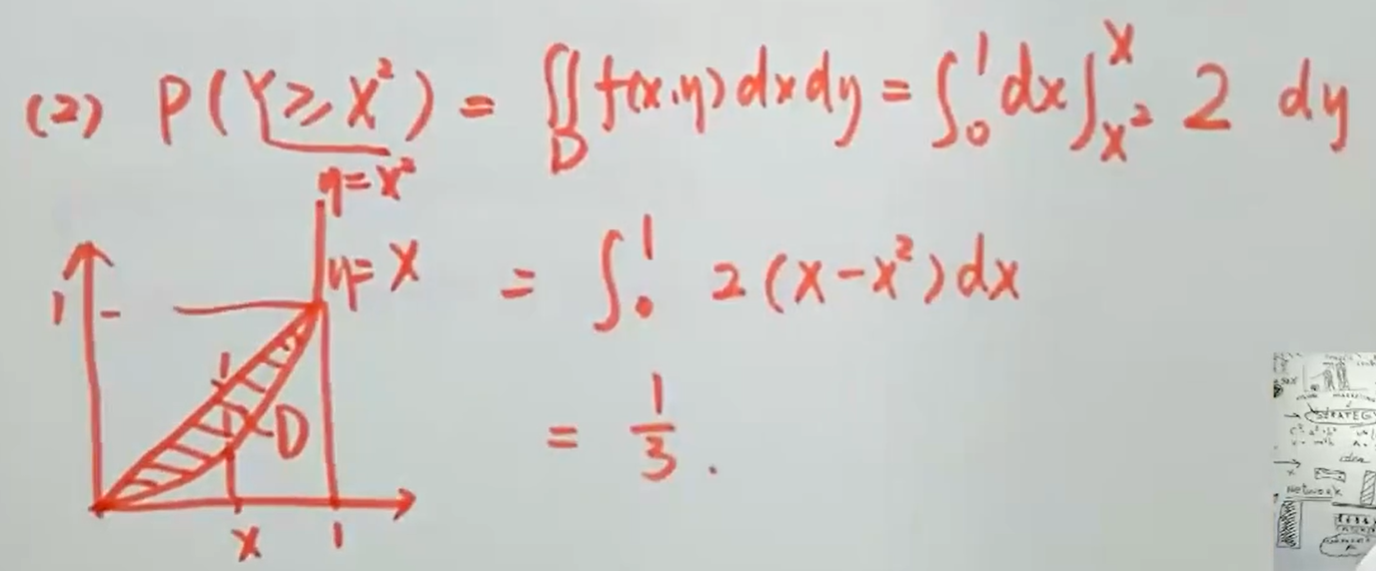 (2) P(Y≥X²) = ∬_D f(x,y)dxdy = ∫₀¹dx∫_{x²}^{x} 2 dy
y=x²
y=x
= ∫₀¹ 2(x-x²)dx
1
D
= 1/3.
x 1
STRATEGY
idea
Network